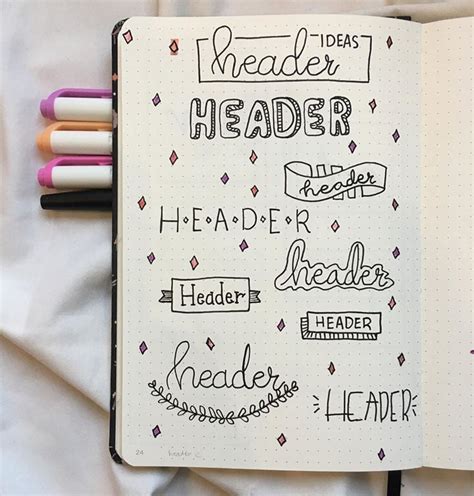 header IDEAS
HEADER
header
H·E·A·D·E·R
header
Header
HEADER
header
HEADER
24 header